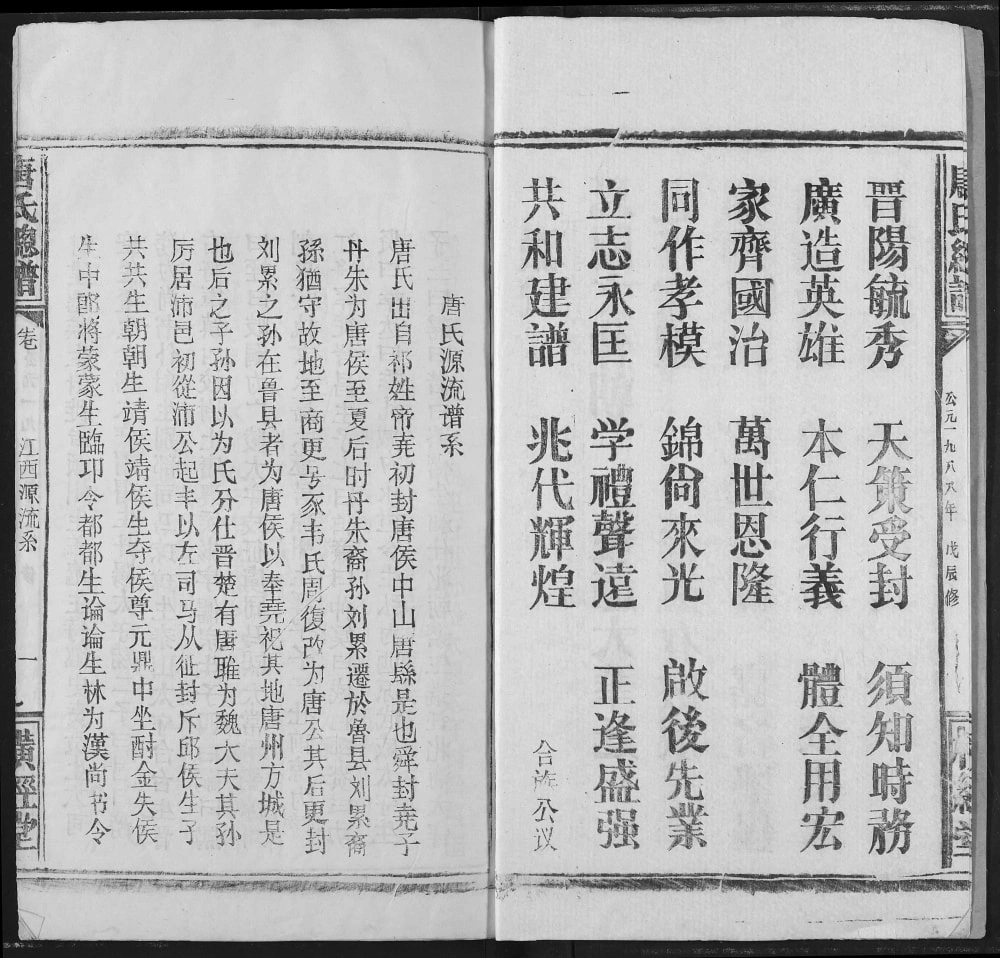 唐氏總譜
公元一九八八年 戊辰修
晋陽毓秀 天策受封 須知時務
廣造英雄 本仁行義 體全用宏
家齊國治 萬世恩隆
同作孝模 錦尙來光 啟後先業
立志永匡 学禮聲遠 正逢盛强
共和建譜 兆代輝煌
合族公议
唐氏源流谱系
唐氏出自祁姓帝尭初封唐侯中山唐縣是也舜封尭子
丹朱为唐侯至夏后时丹朱裔孙刘累遷於魯县刘累裔
孫猶守故地至商更号豕韦氏周復改为唐公其后更封
刘累之孙在鲁县者为唐侯以奉尭祀其地唐州方城是
也后之子孙因以为氏分仕晋楚有唐雎为魏大夫其孙
厉居沛邑初從沛公起丰以左司马从征封斥邱侯生子
共共生朝朝生靖侯靖侯生夺侯尊元鼎中坐酎金失侯
生中郎将蒙蒙生臨卭令都都生论论生林为漢尚书令
唐氏總譜
卷
江西源流系
一